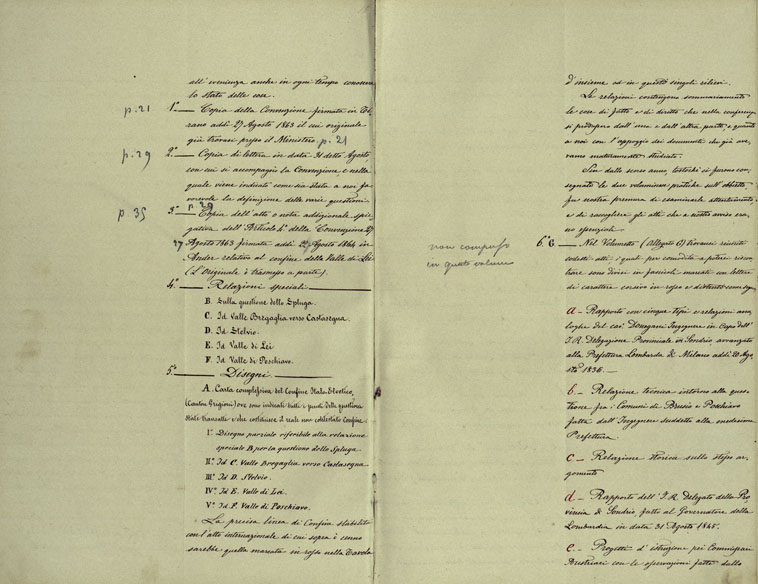 all'evenienza anche in ogni tempo conoscere
lo stato delle cose.
p. 21
1° — Copia della Convenzione firmata in Ti-
rano addì 27 Agosto 1863 il cui originale
già trovasi presso il Ministero p. 21
p. 29
2° — Copia di lettera in data 31 detto Agosto,
con cui si accompagnò la Convenzione, e nella
quale viene indicato come sia stata a noi fa-
vorevole la definizione delle varie questioni
p. 29
p. 35
3° — Copia dell'atto o nota addizionale spie-
gativa dell'Articolo 4° della Convenzione 27
27 Agosto 1863 firmata addì 22 Agosto 1864 in
Ander relativo al confine della Valle di Lei
(L'Originale è trasmesso a parte).
4° — Relazioni speciali —
B. Sulla questione dello Spluga.
C. Id Valle Bregaglia verso Castasegna.
D. Id Stelvio.
E. Id Valle di Lei
F. Id Valle di Poschiavo.
5° — Disegni. —
A. Carta complessiva del Confine Italo-Elvetico,
(Canton Grigioni) ove sono indicati tutti i punti delle questioni
state transatte e che costituisce il reale non contestato Confine.
I° Disegno parziale riferibile alla relazione
speciale B per la questione dello Spluga.
II° Id C. Valle Bregaglia verso Castasegna
III° Id D. Stelvio.
IV° Id E. Valle di Lei.
V° Id F. Valle di Poschiavo.
La precisa linea di Confine stabilito
con l'atto internazionale di cui sopra è cenno
sarebbe quella marcata in rosso nella Tavola
d'insieme ed in questi singoli rilievi.
Le relazioni contengono sommariamente
le cose di fatto e di diritto che nelle conferenze
si produssero dall'una e dall'altra parte, e quanto
a noi con l'appoggio dei documenti che già ave-
vamo maturamente studiati.
Sin dallo scorso anno, tostochè ci furono con-
segnate le due voluminose pratiche sull'obbietto,
fu nostra premura di esaminarle attentamente,
e di raccogliere gli atti che a nostro avviso era-
no essenziali.
non compreso
in questo volume
6° G — Nel Volumetto (Allegato G) trovansi riuniti
codesti atti, i quali per comodità a potere riscon-
trare sono divisi in fascicoli marcati con lettere
di carattere corsivo in rosso e distinti come segue
a — Rapporto con cinque tipi e relazioni ana-
loghe del cav. Donegani Ingegnere in Capo dell'
I. R. Delegazione Provinciale in Sondrio avanzato
alla Prefettura Lombarda di Milano addì 20 Ago-
sto 1836. —
b — Relazione tecnica intorno alla que-
stione fra i Comuni di Brusio e Poschiavo
fatta dall'Ingegnere suddetto alla medesima
Prefettura
c — Relazione storica sullo stesso ar-
gomento
d — Rapporto dell'I. R. Delegato della Pro-
vincia di Sondrio fatto al Governatore della
Lombardia in data 31 Agosto 1845.
e — Progetto d'istruzione pei Commissari
Austriaci con le osservazioni fatte dallo